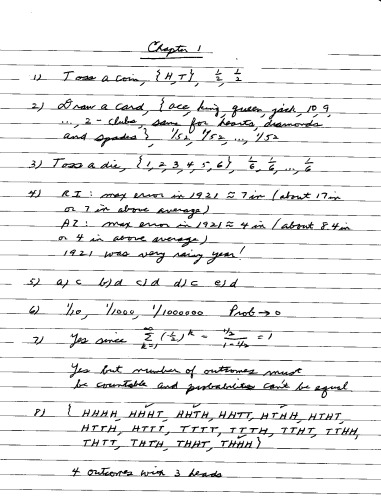 Chapter 1
1) Toss a coin, {H,T}, 1/2, 1/2
2) Draw a card, {ace, king, queen, jack, 10, 9
..., 2 - clubs, same for hearts, diamonds
and spades}, 1/52, 1/52, ..., 1/52
3) Toss a die, {1,2,3,4,5,6}, 1/6, 1/6, ..., 1/6
4) RI: max error in 1921 ≈ 7 in (about 17 in
or 7 in above average)
AZ: max error in 1921 ≈ 4 in (about 8.4 in
or 4 in above average)
1921 was very rainy year!
5) a) c b) d c) d d) c e) d
6) 1/10, 1/1000, 1/1000000 Prob → 0
7) Yes since ∞∑k=1 (1/2)^k = 1/2/1-1/2 = 1
Yes but number of outcomes must
be countable and probabilities can't be equal
8) { HHHH, HHHT, HHTH, HHTT, HTHH, HTHT,
HTTH, HTTT, TTTT, TTTH, TTHT, TTHH,
THTT, THTH, THHT, THHH}
4 outcomes with 3 heads